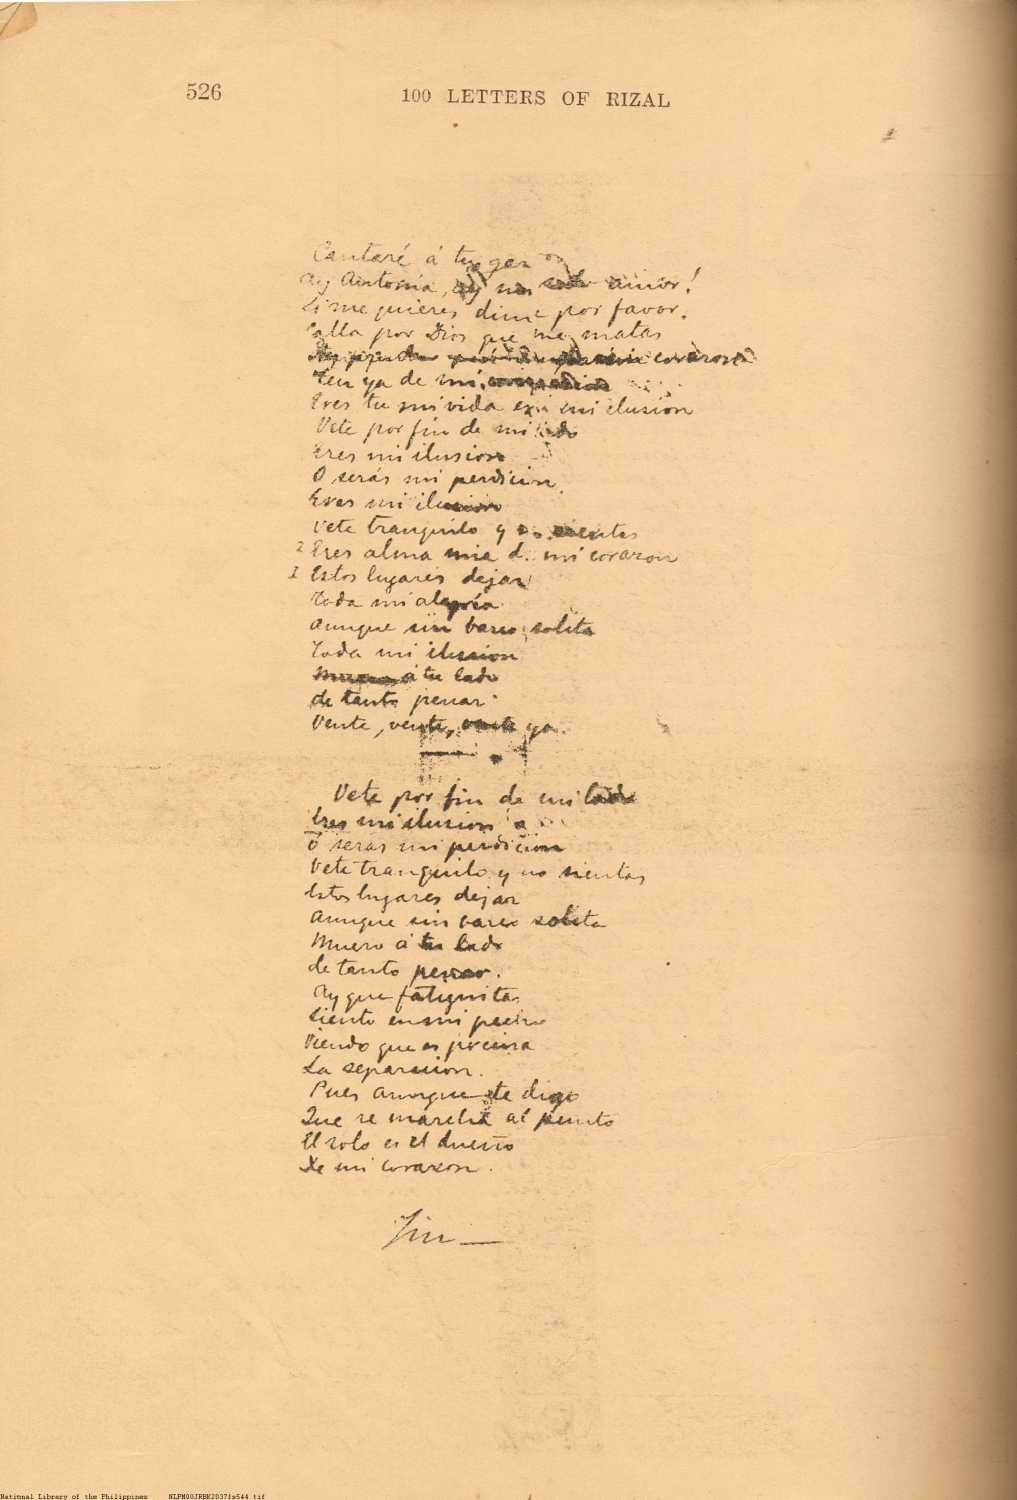 526
100 LETTERS OF RIZAL
Cantaré á tu
Ay Antonia, ay mi solo amor!
Si me quieres dime por favor.
Calla por Dios que me matas
corazon
Ten ya de mi
Eres tu mi vida eres mi ilusion
Vete por fin de mi lado
Eres mi ilusion
O serás mi perdicion.
Eres mi ilusion
Vete tranquilo y no sientas
2 Eres alma mia de mi corazon
1 Estos lugares dejar
Toda mi alegria
Aunque sin barco solita
Toda mi ilusion
Muero á tu lado
de tanto penar
Vente, vente, vente ya.
Vete por fin de mi lado
Eres mi ilusion
O seras mi perdicion
Vete tranquilo y no sientas
Estos lugares dejar
Aunque sin solita
Muero á tu lado
de tanto penar.
Ay que fatiguita
siento en mi pecho
Viendo que es precisa
La separacion.
Pues aunque te digo
Que se marche al punto
El solo es el dueño
De mi corazon.
Fin
National Library of the Philippines NLPM00JRBK2037fs544.tif